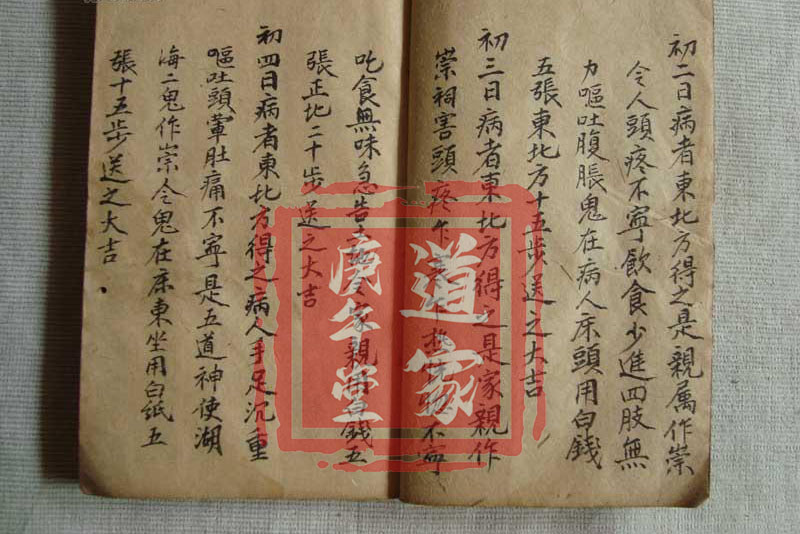 初二日病者東北方得之是親属作祟
令人頭疼不寧飲食少進四肢無
力嘔吐腹脹鬼在病人床頭用白錢
五張東北方十五步送之大吉
初三日病者東北方得之是家親作
祟祠害頭疼乍寒乍熱 不寧
吃食無味急告 家親用白錢五
張正北二十步送之大吉
初四日病者東北方得之病人手足沉重
嘔吐頭暈肚痛不寧是五道神使湖
海二鬼作祟令鬼在床東坐用白纸五
張十五步送之大吉.
道家
庚午堂